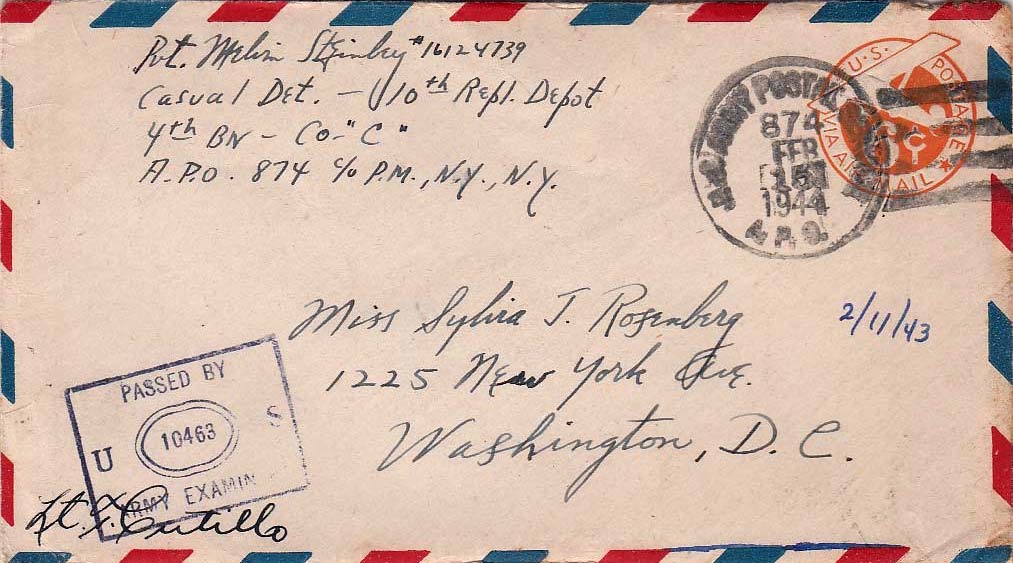 Pvt. Melvin Steinberg #16124739
Casual Det. - 10th Repl. Depot
4th BN - Co-"C"
A.P.O. 874 c/o P.M., N.Y., N.Y.
U.S. POSTAGE
VIA AIR MAIL
6¢
U.S. ARMY POSTAL
874
FEB
15
1944
A.P.O.
Miss Sylvia J. Rosenberg
2/11/43
1225 New York Ave.
Washington, D.C.
PASSED BY
U 10463 S
ARMY EXAMIN
Lt. F. Cutillo